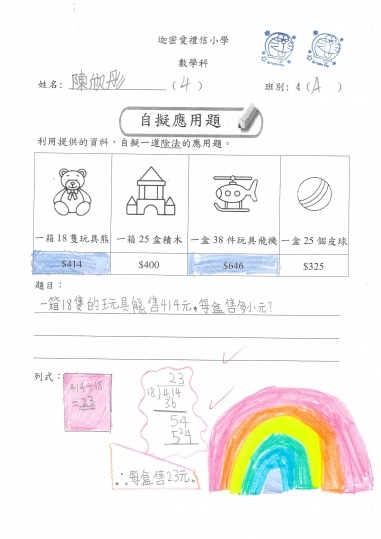 迦密愛禮信小學
數學科
姓名: 陳欣彤 ( 4 ) 班別: 4 ( A )
自擬應用題
利用提供的資料，自擬一道除法的應用題。
一箱 18 隻玩具熊 一箱 25 盒積木 一盒 38 件玩具飛機 一盒 25 個皮球
$414 $400 $646 $325
題目：
一箱18隻的玩具熊售414元。每盒售多少元?
列式：
414÷18
=23
23
18)414
36
54
54
∴每盒售23元。